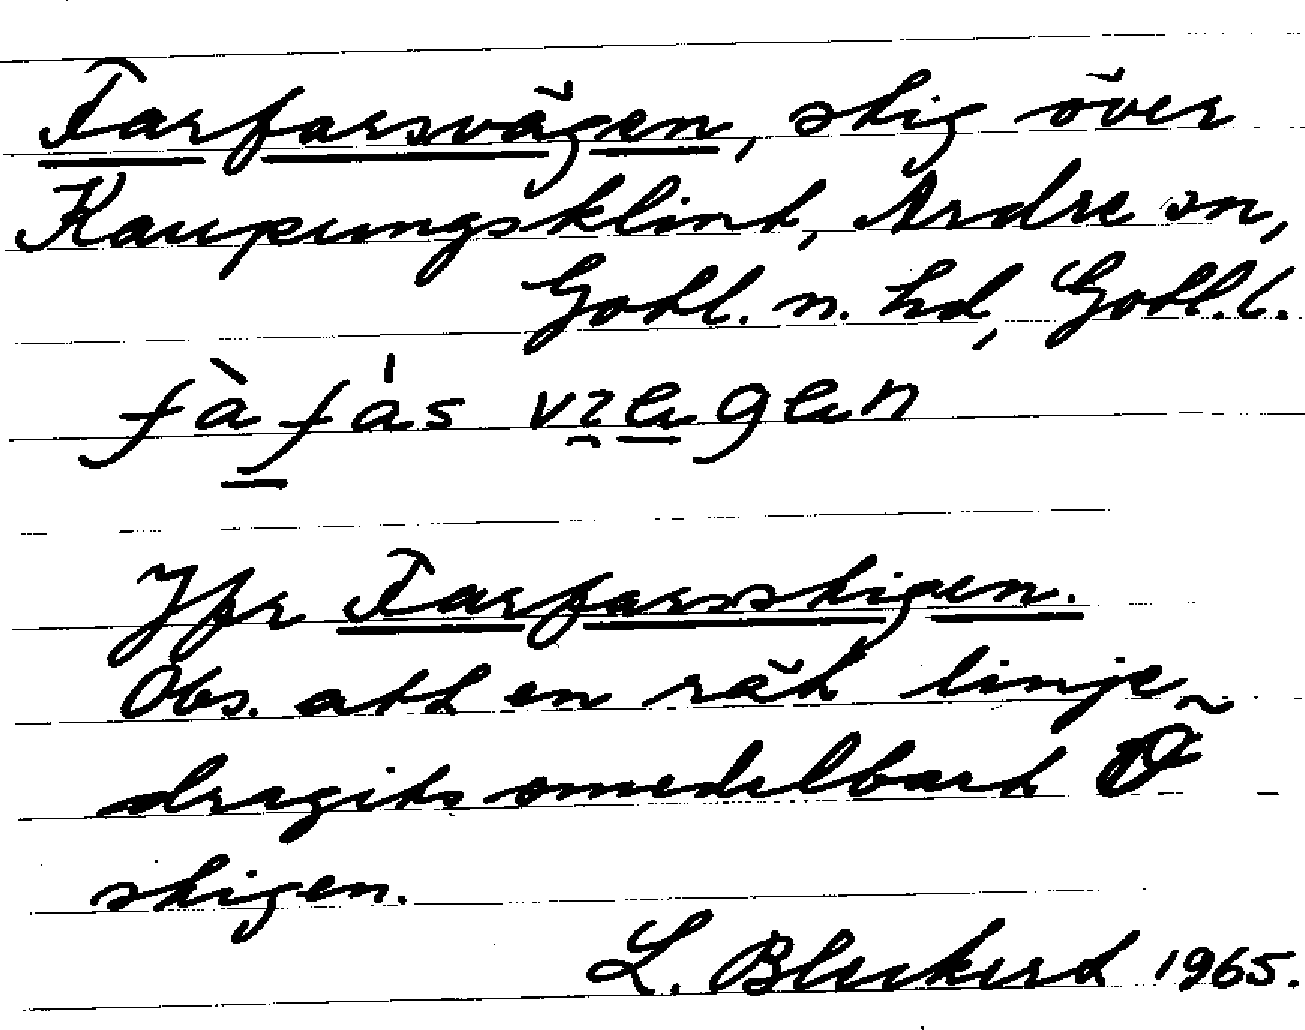 Farfarsvägen, stig över
Kaupungsklint, Ardre sn,
Gotl. n. hd, Gotl. l.
Jfr Farfarsstigen.
Obs. att en rät linje
dragits omedelbart Ö
stigen.
L. Bleckert 1965.